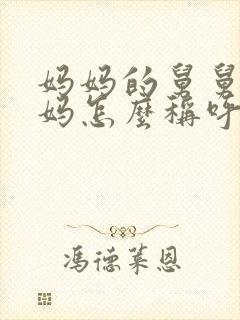 妈妈的舅舅
妈怎麼稱呼
馮德萊恩